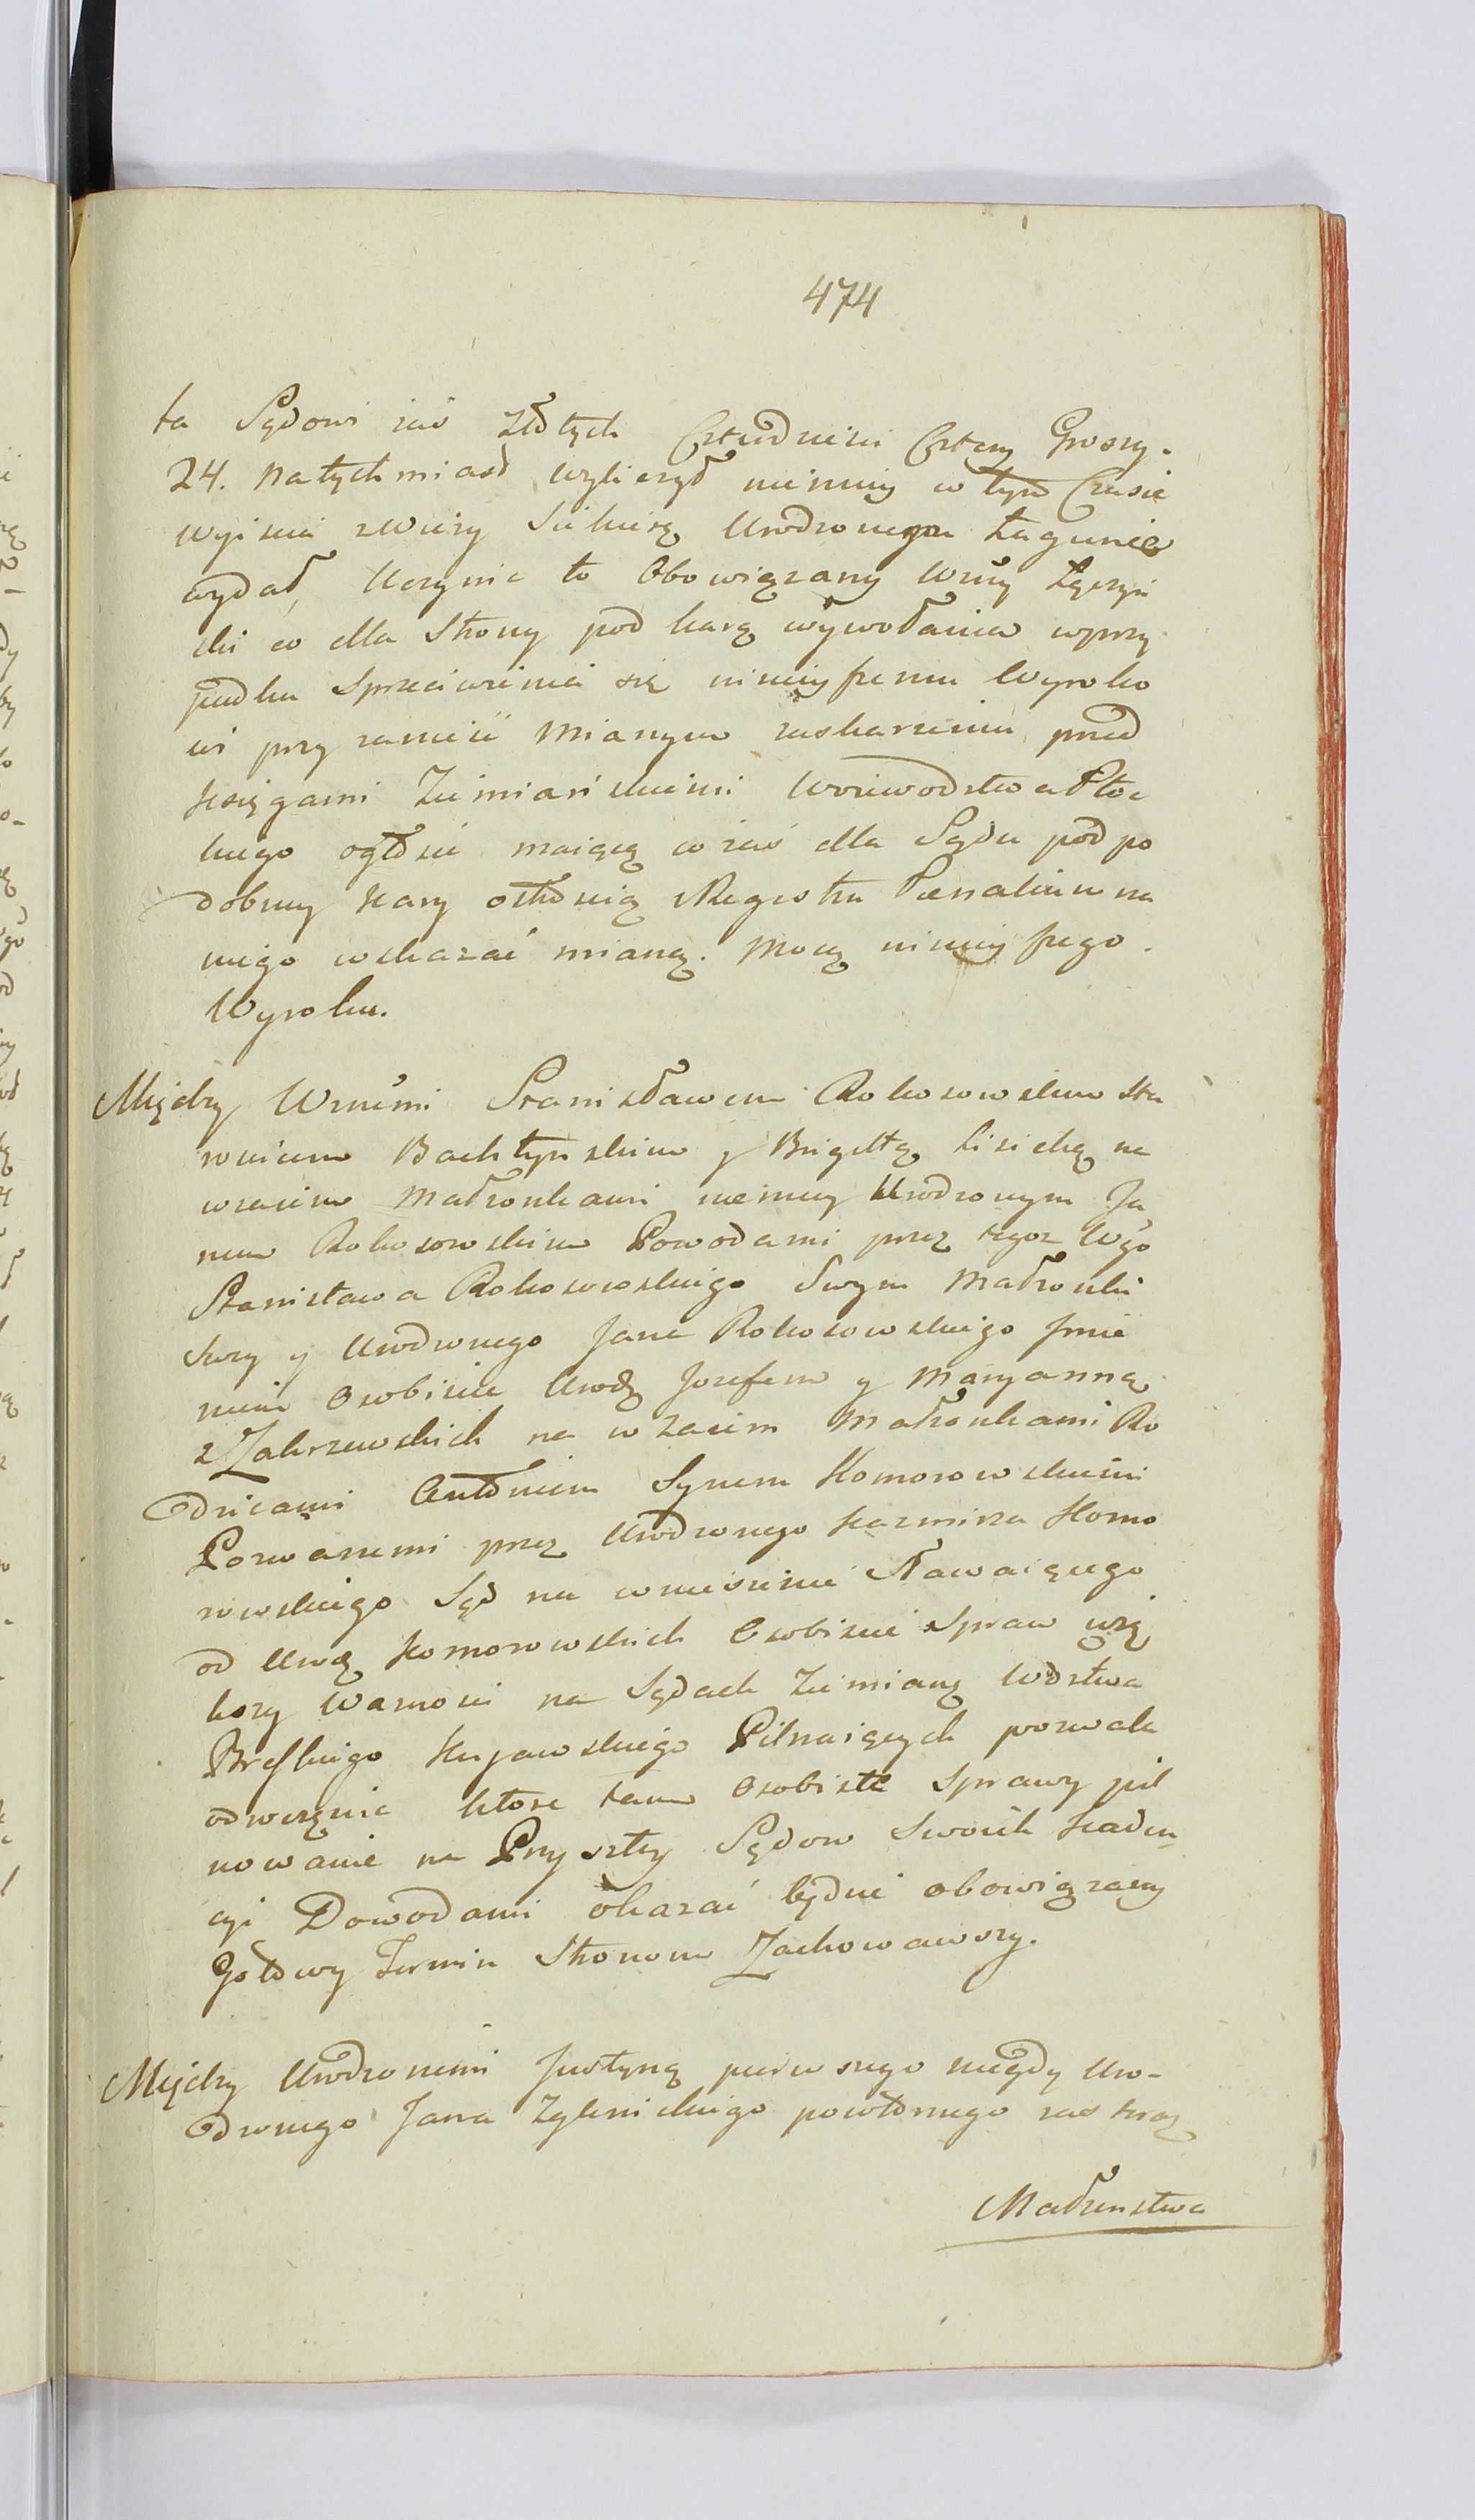 474
ta Sądowi zaś Złotych Czterdzieści Cztery Groszy.
24. natychmiast wyliczył niemniej w tym Czasie
wyiscia z Wieży Suknią Urodzonego Łagunie
wydał, Uczynic to Obowiązany Wźny Łączyń
ski co dla Strony pod karą wywołania wprzy
padku Sprzeciwienia się ninieyszemu Wyroko
wi przy zaniesć mianym zaskarzeniu przed
Księgami Ziemiańskiemi Woiewodztwa Płoc
kiego ogłosić maiącą co zaś dla Sądu pod po
dobney kary ostrością z Regestru Poenalium na
niego wskazać mianą. Mocą ninieyszego.
Wyroku.
Między Wznemi Stanisławem Rokosowskim Ska
rnicem Bachtyńskim y Brigittą Lisicką na
wzaiem Małzonkami niemniej Urodzonym Ja
nem Rokosowskim Powodami przez tegoz Wgo
Stanisława Rokosowskiego Swym Małzonki
Swey y Urodzonego Jana Rokosowskiego Jmie
niem Osobiscie Urodz Jozefem y Maryanną
z Zakrzewskich na wzaiem Małzonkami Ro
dzicami Antonim Synem Komorowskiemi
Pozwanemi przez Urodzonego Kazmirza Komo
rowskiego Sąd na wniesienie Stawaiącego
od Urodz Komorowskich Osobiscie Spraw wię
kszy Warnosci na Sądach Ziemiań Wdztwa
Brzeskiego Kujawskiego Pilnaiących pozwala
odwłocznie ktore tam Osobiste Sprawy pil
nowanie na Przyszłey Sądow Swoich Kaden
cyi Dowodami okazać będzie obowiązany
Gotowy Termin Stronom Zachowawszy.
Między Urodzonemi Justyną pierwszego niegdy Uro-
dzonego Jana Zglenickiego powtornego zas teraz
Małzenstwa